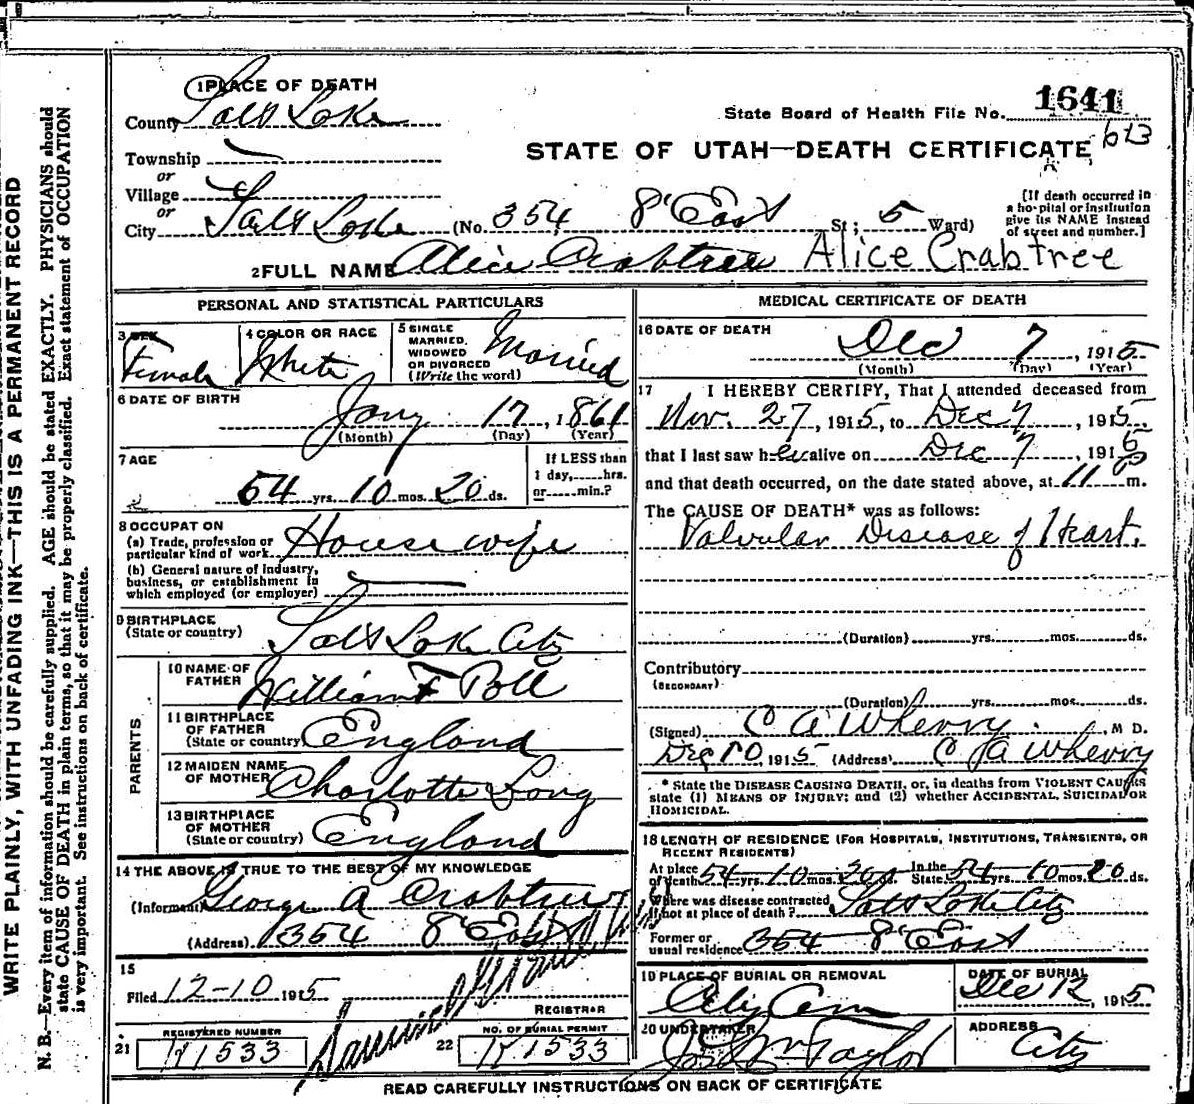 WRITE PLAINLY, WITH UNFADING INK—THIS IS A PERMANENT RECORD
N. B.—Every item of information should be carefully supplied. AGE should be stated EXACTLY. PHYSICIANS should
state CAUSE OF DEATH in plain terms, so that it may be properly classified. Exact statement of OCCUPATION
is very important. See instructions on back of certificate.
1 PLACE OF DEATH
County Salt Lake
State Board of Health File No. 1641
613
Township
or
Village
or
City Salt Lake (No. 354 8" East St; 5 Ward)
STATE OF UTAH—DEATH CERTIFICATE
[If death occurred in
a hospital or institution
give its NAME instead
of street and number.]
2 FULL NAME Alice Crabtree Alice Crabtree
PERSONAL AND STATISTICAL PARTICULARS
3 SEX
Female
4 COLOR OR RACE
White
5 SINGLE
MARRIED,
WIDOWED
OR DIVORCED
(Write the word)
Married
6 DATE OF BIRTH
Jany 17, 1861
(Month) (Day) (Year)
7 AGE
54 yrs. 10 mos. 20 ds.
If LESS than
1 day,......hrs.
or......min.?
8 OCCUPATION
(a) Trade, profession or
particular kind of work Housewife
(b) General nature of industry,
business, or establishment in
which employed (or employer)
9 BIRTHPLACE
(State or country) Salt Lake City
PARENTS
10 NAME OF
FATHER William F Poll
11 BIRTHPLACE
OF FATHER
(State or country) England
12 MAIDEN NAME
OF MOTHER Charlotte Long
13 BIRTHPLACE
OF MOTHER
(State or country) England
14 THE ABOVE IS TRUE TO THE BEST OF MY KNOWLEDGE
(Informant) George A Crabtree
(Address) 354 8" East
15
Filed 12-10 1915
REGISTRAR
REGISTERED NUMBER
21 1533
NO. OF BURIAL PERMIT
22 1533
MEDICAL CERTIFICATE OF DEATH
16 DATE OF DEATH
Dec 7, 1915
(Month) (Day) (Year)
17 I HEREBY CERTIFY, That I attended deceased from
Nov. 27, 1915, to Dec 7, 1915
that I last saw her alive on Dec 7, 1915
and that death occurred, on the date stated above, at 11 P m.
The CAUSE OF DEATH* was as follows:
Valvular Disease of Heart.
(Duration) yrs. mos. ds.
Contributory
(SECONDARY)
(Duration) yrs. mos. ds.
(Signed) C A Wherry, M D.
Dec 10, 1915 (Address) C A Wherry
* State the DISEASE CAUSING DEATH, or, in deaths from VIOLENT CAUSES
state (1) MEANS OF INJURY; and (2) whether ACCIDENTAL, SUICIDAL OR
HOMICIDAL.
18 LENGTH OF RESIDENCE (FOR HOSPITALS, INSTITUTIONS, TRANSIENTS, OR
RECENT RESIDENTS)
At place
of death 54 yrs. 10 mos. 20 ds. In the
State 54 yrs. 10 mos. 20 ds.
Where was disease contracted
If not at place of death? Salt Lake City
Former or
usual residence 354 8" East
19 PLACE OF BURIAL OR REMOVAL
City Cem
DATE OF BURIAL
Dec 12, 1915
20 UNDERTAKER
Jos Wm Taylor
ADDRESS
City
READ CAREFULLY INSTRUCTIONS ON BACK OF CERTIFICATE